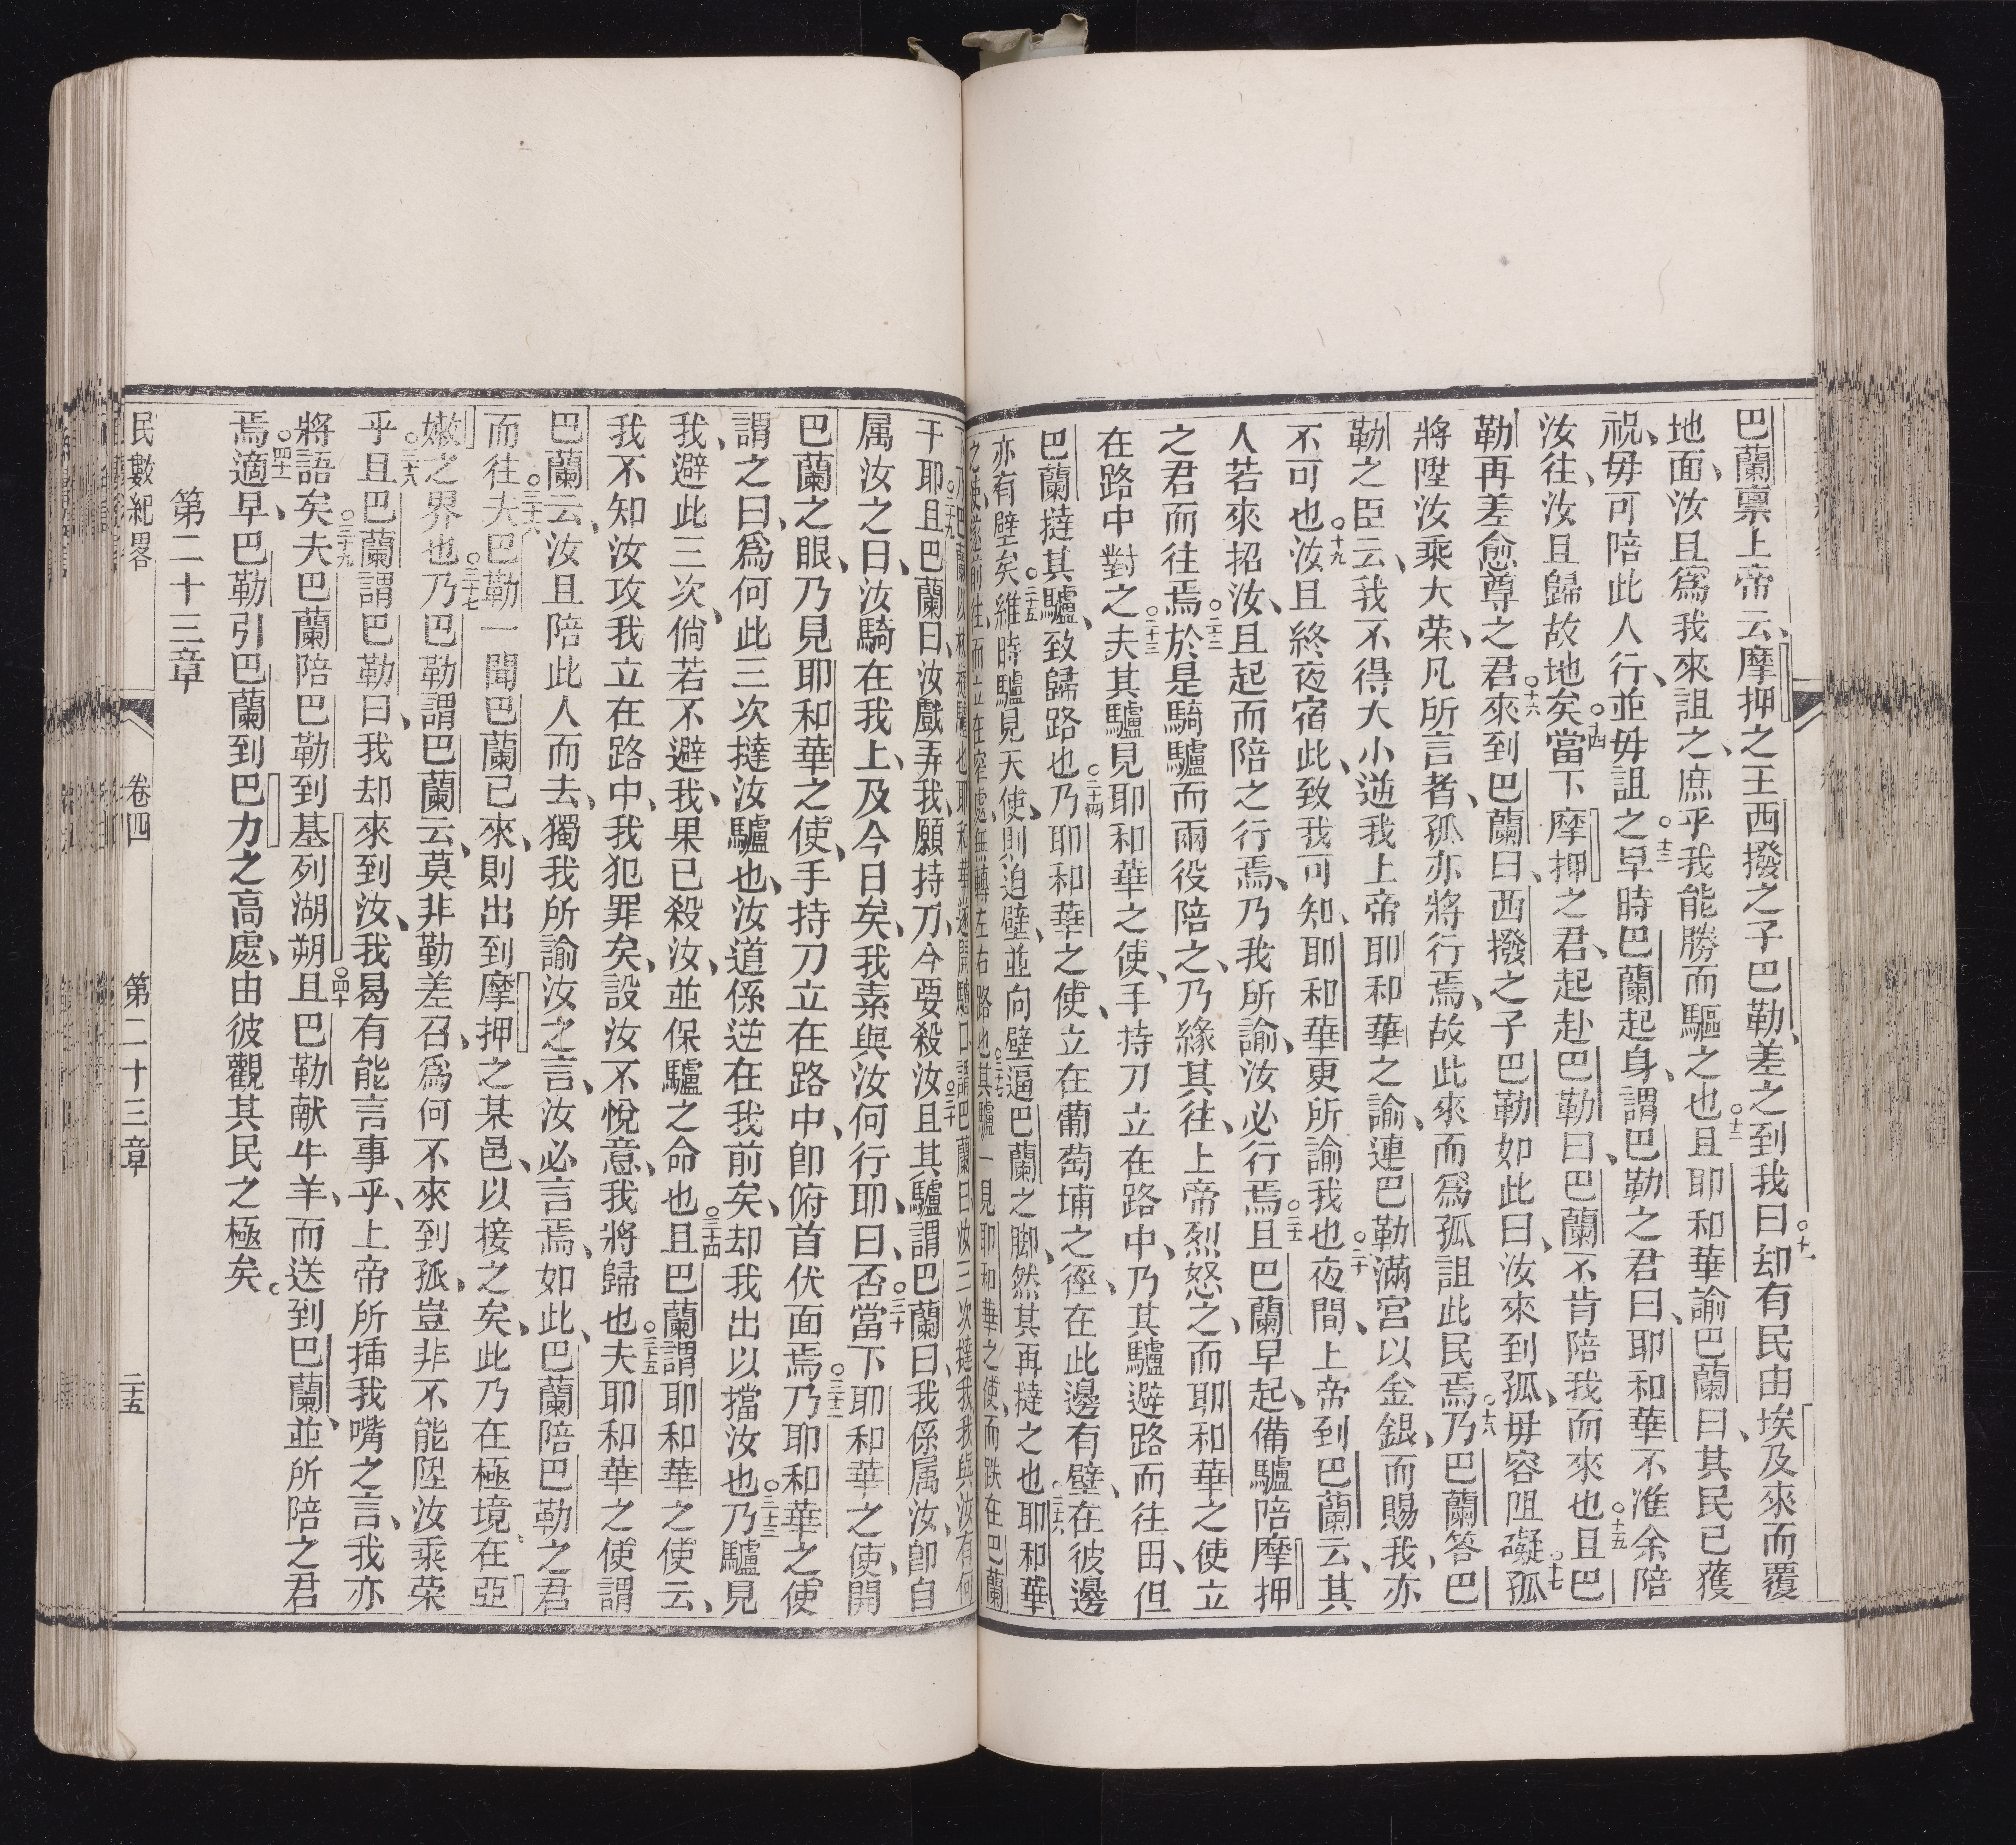 巴蘭禀上帝云、摩押之王西撥之子巴勒、差之到我曰○十却有民由埃及來而覆
地面、汝且爲我來詛之、庶乎我能勝而驅之也○十二且耶和華諭巴蘭曰、其民已獲
祝、毋可陪此人行、並毋詛之○十三早時巴蘭起身、謂巴勒之君曰、耶和華不准余陪
汝往、汝且歸故地矣○十四當下摩押之君、起赴巴勒曰、巴蘭不肯陪我而來也○十五且巴
勒再差愈尊之君○十六來到巴蘭曰、西撥之子巴勒如此曰、汝來到孤、毋容阻礙孤○十七
將陞汝乘大荣、凡所言者、孤亦將行焉、故此來而爲孤詛此民焉○十八乃巴蘭答巴
勒之臣云、我不得大小逆我上帝耶和華之諭、連巴勒滿宮以金銀、而賜我、亦
不可也○十九汝且終夜宿此、致我可知、耶和華更所諭我也○二十夜間、上帝到巴蘭云、其
人若來招汝、且起而陪之行焉、乃我所諭、汝必行焉○二十一且巴蘭早起、備驢陪摩押
之君而往焉○二十二於是騎驢而兩役陪之、乃緣其往、上帝烈怒之、而耶和華之使立
在路中對之○二十三夫其驢見耶和華之使、手持刀立在路中、乃其驢避路而往田、但
巴蘭撻其驢、致歸路也○二十四乃耶和華之使、立在葡萄埔之徑、在此邊有壁、在彼邊
亦有壁矣○二十五維時驢見天使、則迫壁、並向壁逼巴蘭之脚、然其再撻之也○二十六耶和華
之使、遂前往、而立在窄處、無轉左右路也○二十七其驢一見耶和華之使、而跌在巴蘭
乃巴蘭以杖撻驢也耶和華遂開驢口、謂巴蘭曰汝三次撻我我與汝有何
干耶○二十九且巴蘭曰、汝戲弄我、願持刀、今要殺汝○三十且其驢謂巴蘭曰、我係属汝、卽自
属汝之日、汝騎在我上、及今日矣、我素與汝何行耶、曰、否○三十一當下耶和華之使、開
巴蘭之眼、乃見耶和華之使、手持刀立在路中、卽俯首伏面焉○三十二乃耶和華之使
謂之曰、爲何此三次撻汝驢也、汝道係逆在我前矣、却我出以擋汝也○三十三乃驢見
我、避此三次、倘若不避我、我果已殺汝、並保驢之命也○三十四且巴蘭謂耶和華之使云、
我不知汝攻我立在路中、我犯罪矣、設汝不悅意、我將歸也○三十五夫耶和華之使謂
巴蘭云、汝且陪此人而去、獨我所諭汝之言、汝必言焉、如此、巴蘭陪巴勒之君
而往○三十六夫巴勒一聞巴蘭已來、則出到摩押之某邑、以接之矣、此乃在極境、在亞
嫩之界也○三十七乃巴勒謂巴蘭云、莫非勤差召、爲何不來到孤、豈非不能陞汝乘荣
乎○三十八且巴蘭謂巴勒曰、我却來到汝、我曷有能言事乎、上帝所挿我嘴之言、我亦
將語矣○三十九夫巴蘭陪巴勒到基列湖朔○四十且巴勒献牛羊、而送到巴蘭、並所陪之君
焉○四十一適早、巴勒引巴蘭到巴力之高處、由彼觀其民之極矣。
第二十三章
民數紀畧　卷四　第二十三章　二十五